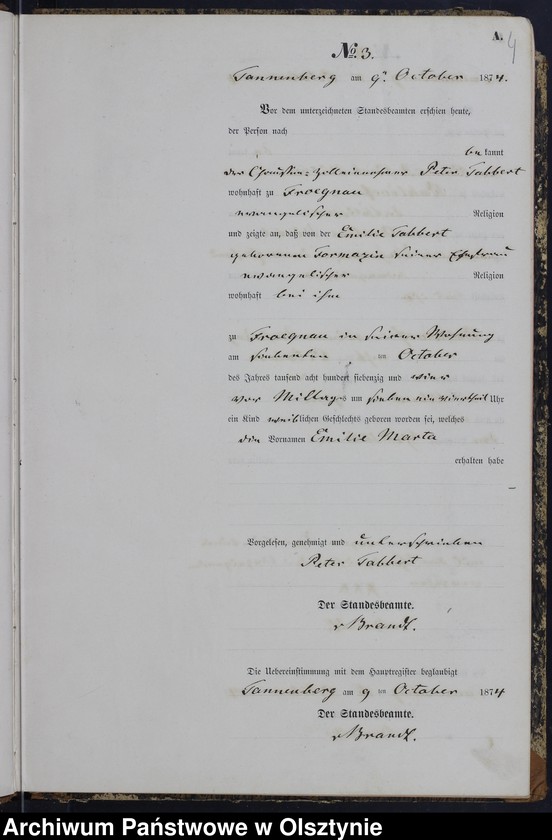 A.
4
No. 3.
Tannenberg am 9n October 1874.
Vor dem unterzeichneten Standesbeamten erschien heute,
der Person nach
be kannt
der Chaussee-Zolleinnehmer Peter Tabbert
wohnhaft zu Froegnau
evangelischer Religion
und zeigte an, daß von der Emilie Tabbert
geborenen Formazin seiner Ehefrau
evangelischer Religion
wohnhaft bei ihm
zu Froegnau in seiner Wohnung
am siebenten ten October
des Jahres tausend acht hundert siebenzig und vier
vor Mittags um sieben ein viertheil Uhr
ein Kind weiblichen Geschlechts geboren worden sei, welches
die Vornamen Emilie Marta
erhalten habe
Vorgelesen, genehmigt und unterschrieben
Peter Tabbert
Der Standesbeamte.
v Brandt.
Die Uebereinstimmung mit dem Hauptregister beglaubigt
Tannenberg am 9 ten October 1874
Der Standesbeamte.
v Brandt.
Archiwum Państwowe w Olsztynie